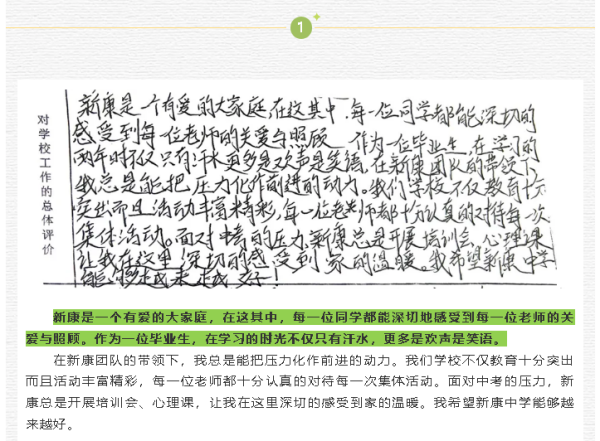 1
对学校工作的总体评价
新康是一个有爱的大家庭,在这其中,每一位同学都能深切的
感受到每一位老师的关爱与照顾 作为一位毕业生,在学习的
两年时不仅只有汗水更多是欢声是笑语,在新康团队的带领下,
我总是能把压力化作前进的动力。我们学校不仅教育十分
突出而且活动丰富精彩,每一位老师都十分认真的对待每一次
集体活动。面对中考的压力,新康总是开展培训会、心理课
让我在这里深切的感受到家的温暖。我希望新康中学
能够越来越好!
新康是一个有爱的大家庭，在这其中，每一位同学都能深切地感受到每一位老师的关
爱与照顾。作为一位毕业生，在学习的时光不仅只有汗水，更多是欢声是笑语。
在新康团队的带领下，我总是能把压力化作前进的动力。我们学校不仅教育十分突出
而且活动丰富精彩，每一位老师都十分认真的对待每一次集体活动。面对中考的压力，新
康总是开展培训会、心理课，让我在这里深切的感受到家的温暖。我希望新康中学能够越
来越好。